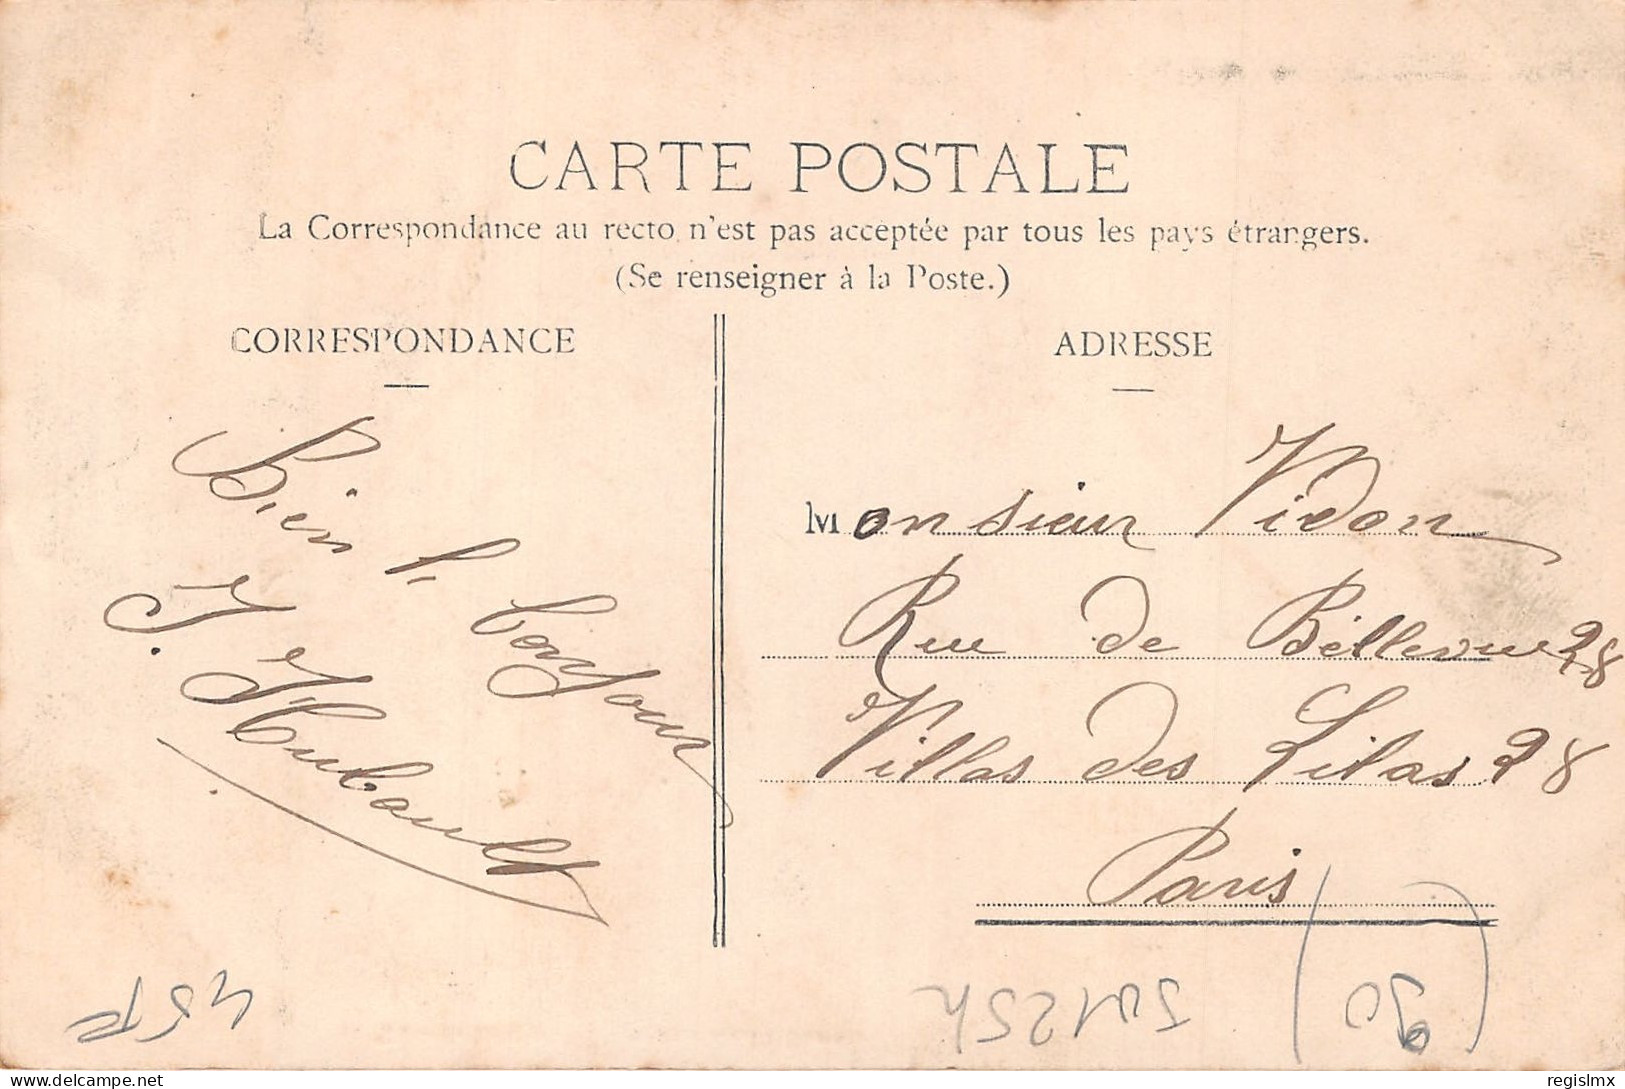 CARTE POSTALE
La Correspondance au recto n'est pas acceptée par tous les pays étrangers.
(Se renseigner à la Poste.)
CORRESPONDANCE
Bien l. bonjour
J. Hubault
ADRESSE
Monsieur Vidon
Rue de Bellevue 28
Villas des Lilas 28
Paris
delcampe.net
regislmx